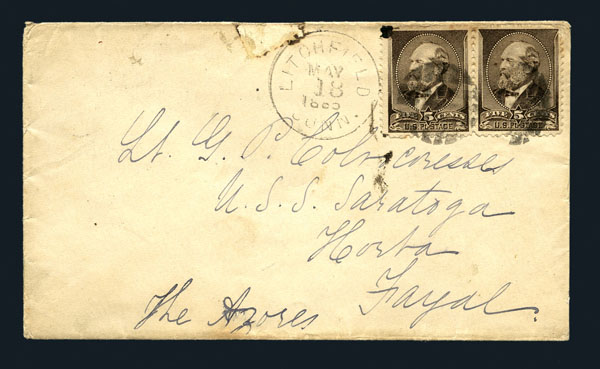 LITCHFIELD
MAY
18
1885
CONN.
5 CENTS 5 CENTS
U.S. POSTAGE U.S. POSTAGE
Lt. G. P. Colvocoresses
U. S. S. Saratoga
Horta
Fayal.
The Azores